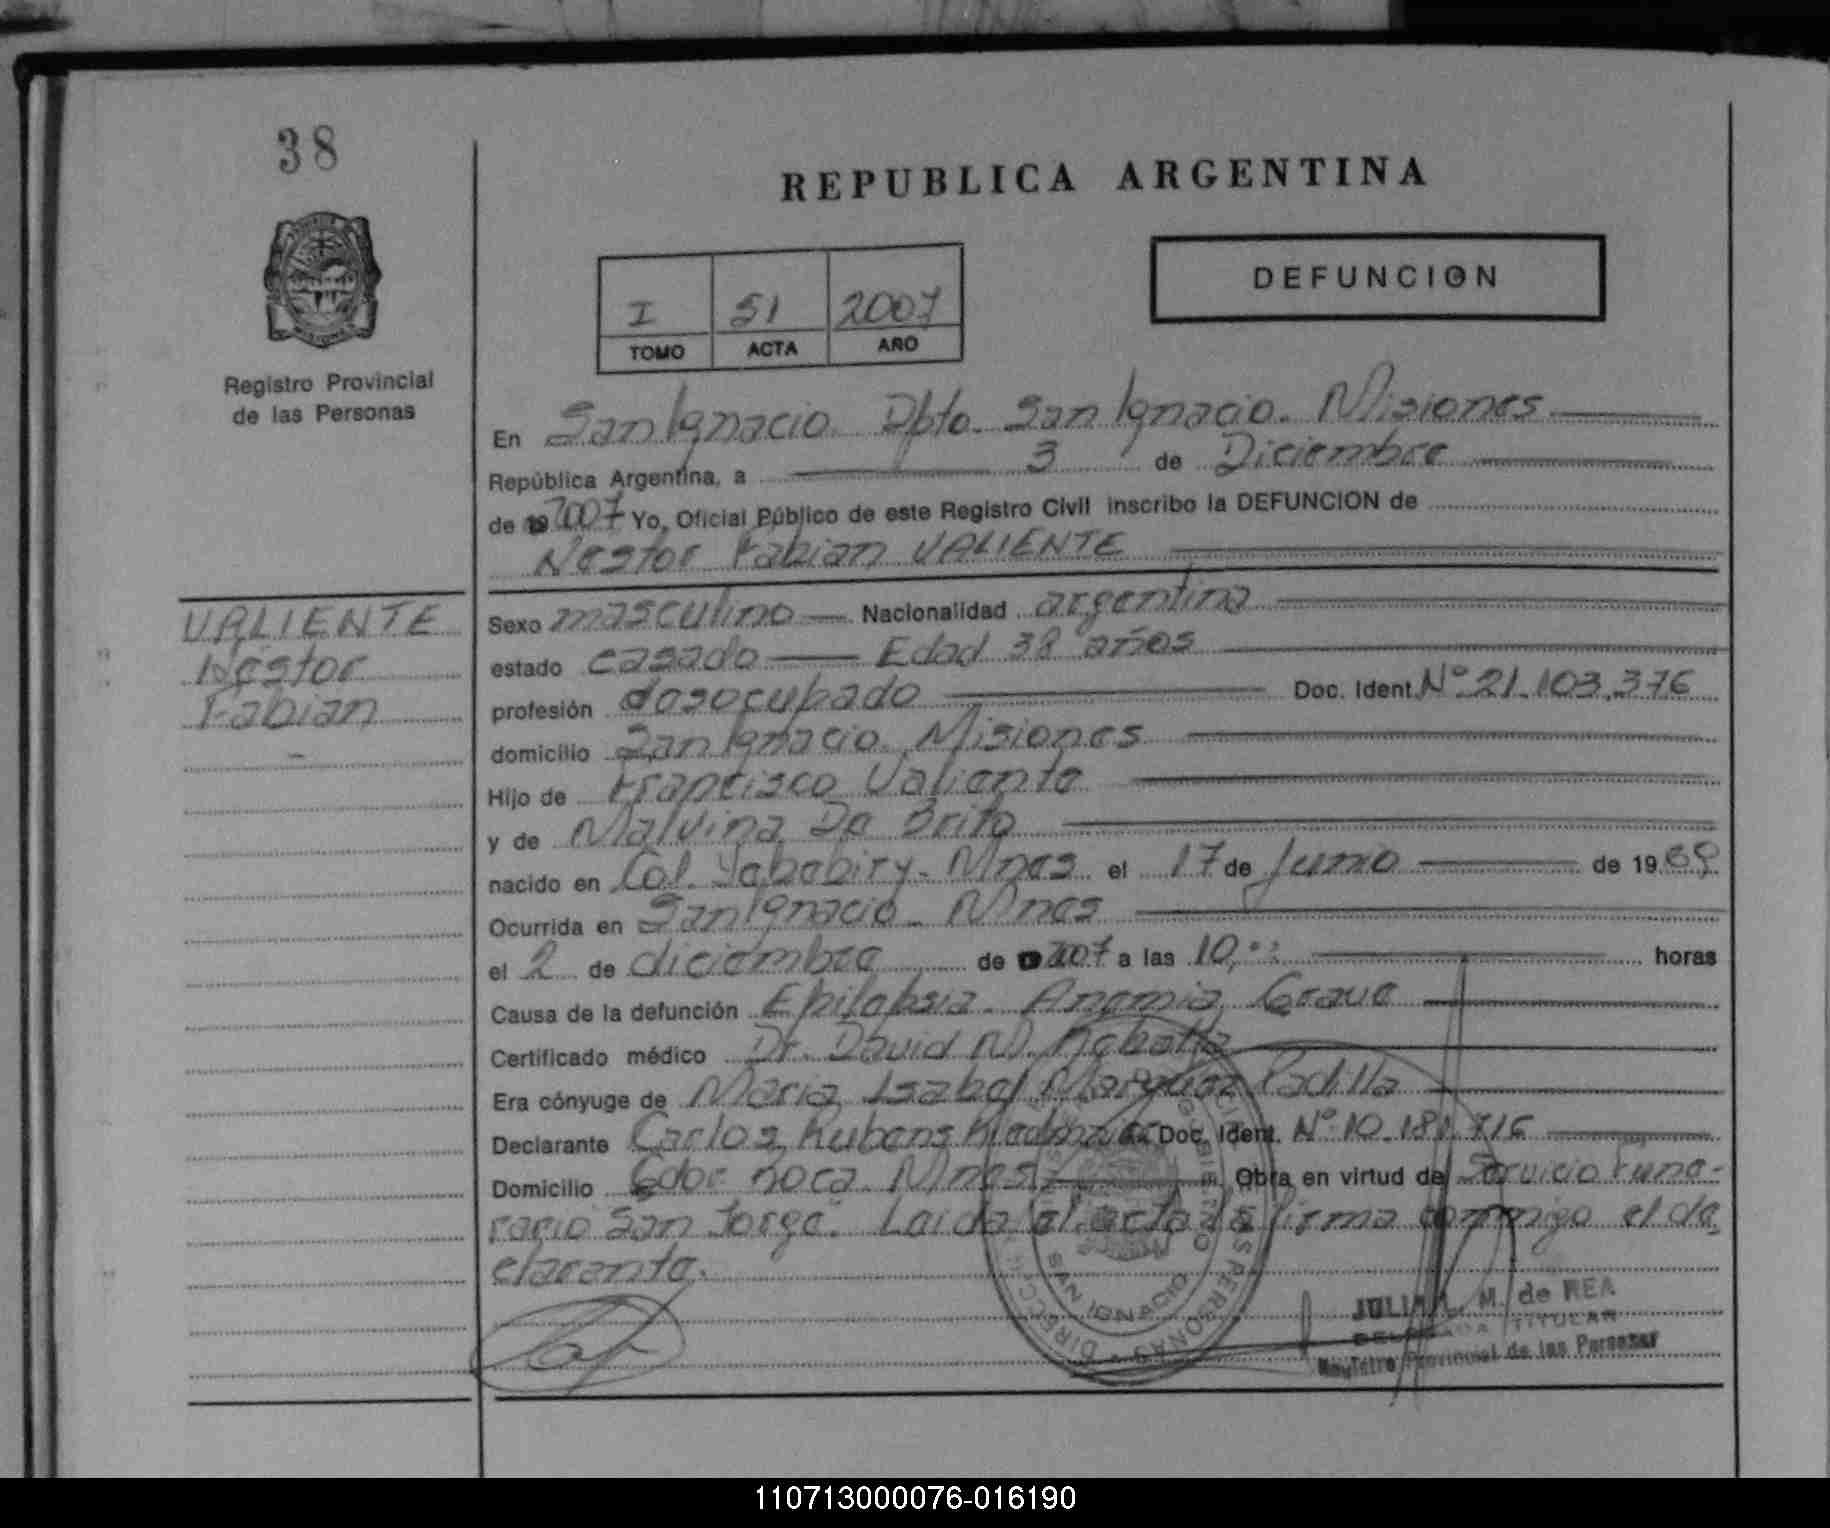 38
REPUBLICA ARGENTINA
DEFUNCION
I 51 2007
TOMO ACTA AÑO
Registro Provincial
de las Personas
En San Ignacio Dpto. San Ignacio. Misiones
República Argentina, a 3 de Diciembre
de 2007 Yo, Oficial Público de este Registro Civil inscribo la DEFUNCION de
Nestor Fabian VALIENTE
VALIENTE
Nestor
Fabian
Sexo masculino Nacionalidad argentina
estado casado Edad 38 años
profesión desocupado Doc. Ident. Nº 21.103.376
domicilio San Ignacio. Misiones
Hijo de Francisco Valiente
y de Malvina De Brito
nacido en Col. Yabebiry - Mnes el 17 de Junio de 1969
Ocurrida en San Ignacio - Mnes
el 2 de diciembre de 2007 a las 10,00 horas
Causa de la defunción Epilepsia. Anemia Grave
Certificado médico Dr. David M.
Era cónyuge de Maria Isabel Marquez Padilla
Declarante Carlos Rubens Doc. Ident. Nº 10.181.716
Domicilio Gdor Roca. Mnes Obra en virtud de Servicio Fune-
rario San Jorge. Leida el acta la firma conmigo el de
clarante.
SAN IGNACIO
JULIA L. M. de REA
DELEGADA TITULAR
Registro Provincial de las Personas
110713000076-016190